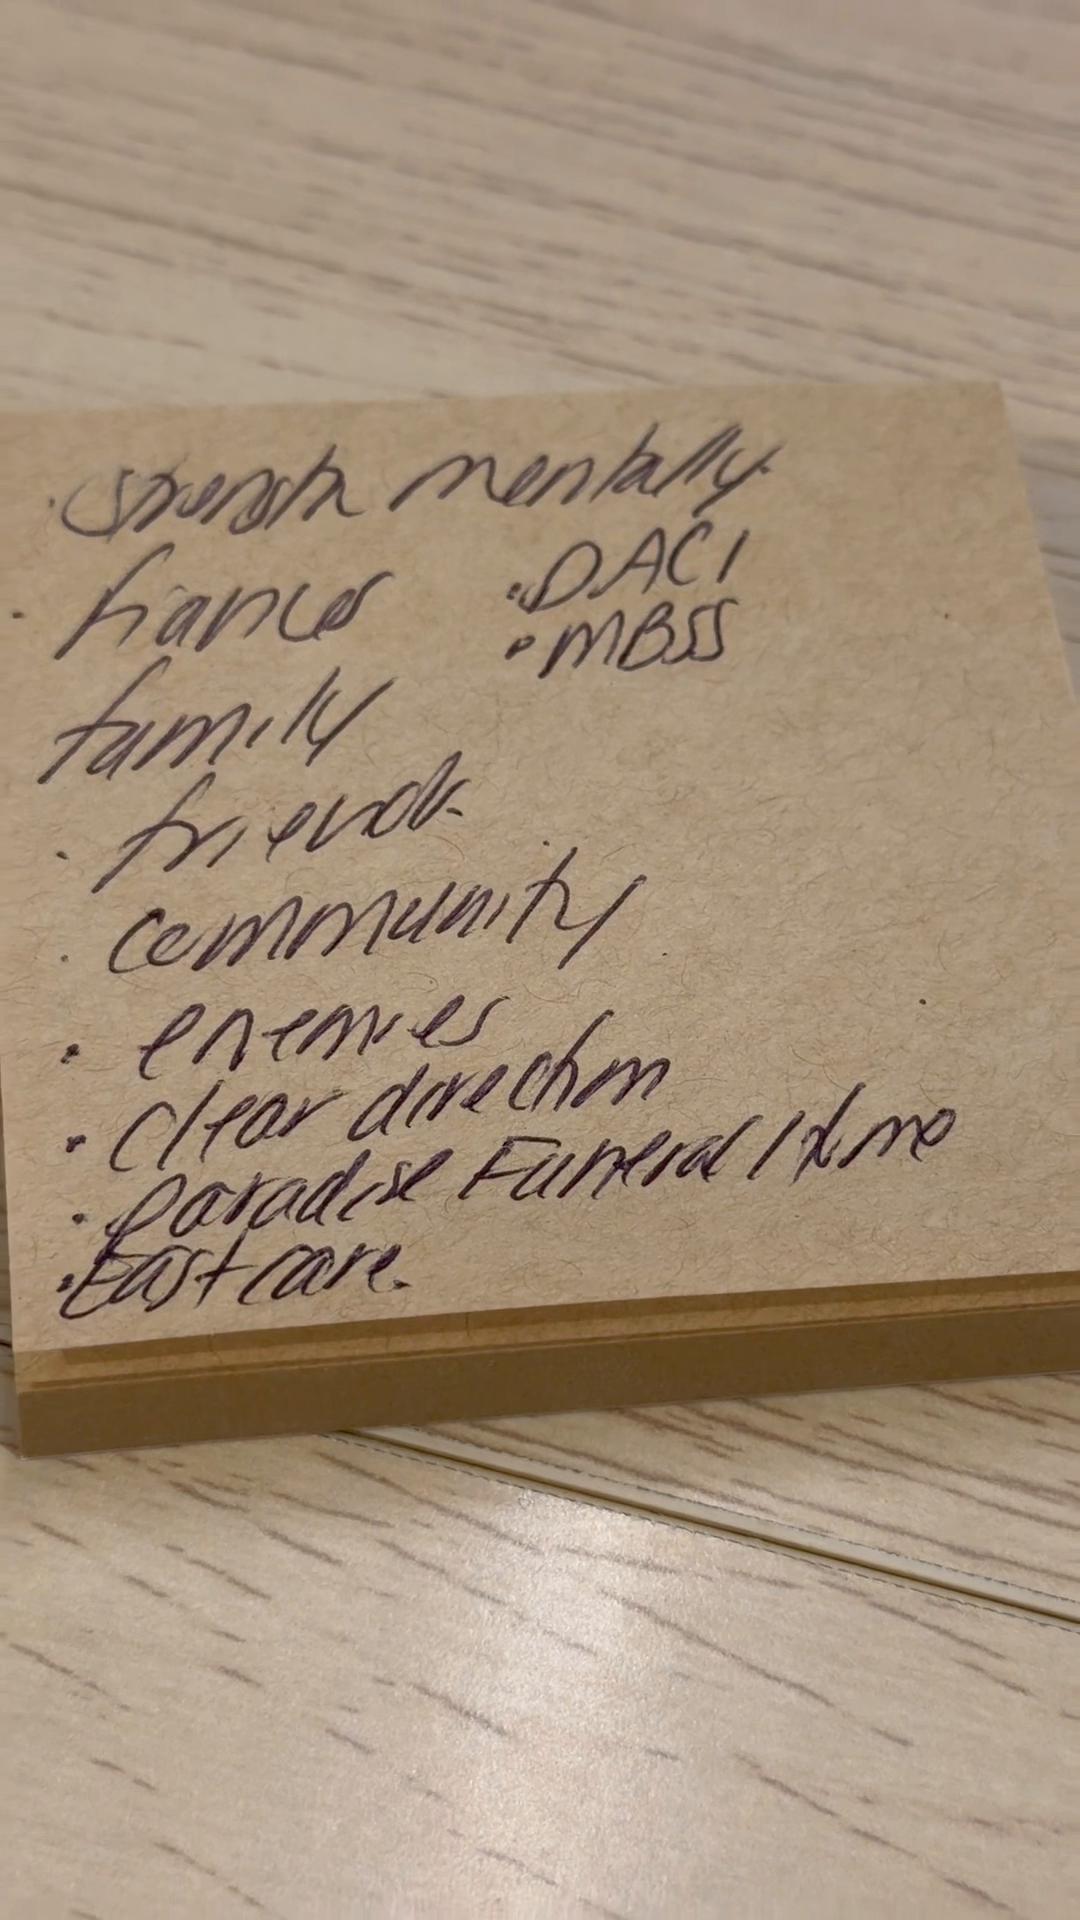 · Strength mentally.
· finances
· DACI
· MBSS
family
· friends
· community
· enemies
· clear direction
· paradise Funeral Home
· East care.